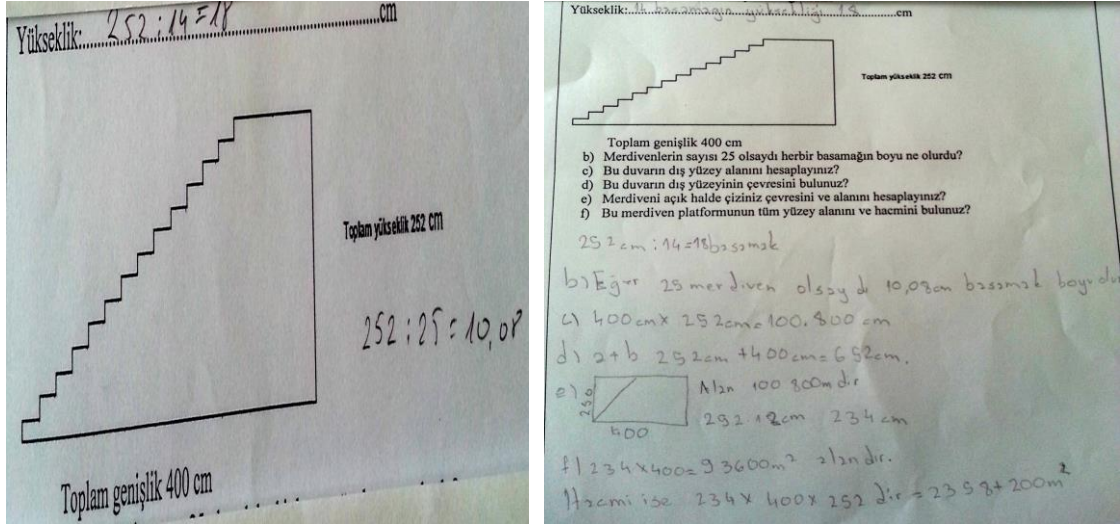 Yükseklik: 252 : 14 = 18 cm
Toplam yükseklik 252 cm
252 : 25 = 10,08
Toplam genişlik 400 cm
Yükseklik: 14 basamağın yüksekliği 18 cm
Toplam yükseklik 252 cm
Toplam genişlik 400 cm
b) Merdivenlerin sayısı 25 olsaydı herbir basamağın boyu ne olurdu?
c) Bu duvarın dış yüzey alanını hesaplayınız?
d) Bu duvarın dış yüzeyinin çevresini bulunuz?
e) Merdiveni açık halde çiziniz çevresini ve alanını hesaplayınız?
f) Bu merdiven platformunun tüm yüzey alanını ve hacmini bulunuz?
252 cm : 14 = 18 basamak
b) Eğer 25 merdiven olsaydı 10,08cm basamak boyu
c) 400cm x 252cm = 100.800 cm
d) a+b 252cm + 400cm = 652cm.
e) Alan 100 800m dir
250
252 18cm 234 cm
400
f) 234 x 400 = 93600m² alandır.
Hacmi ise 234 x 400 x 252 dir =